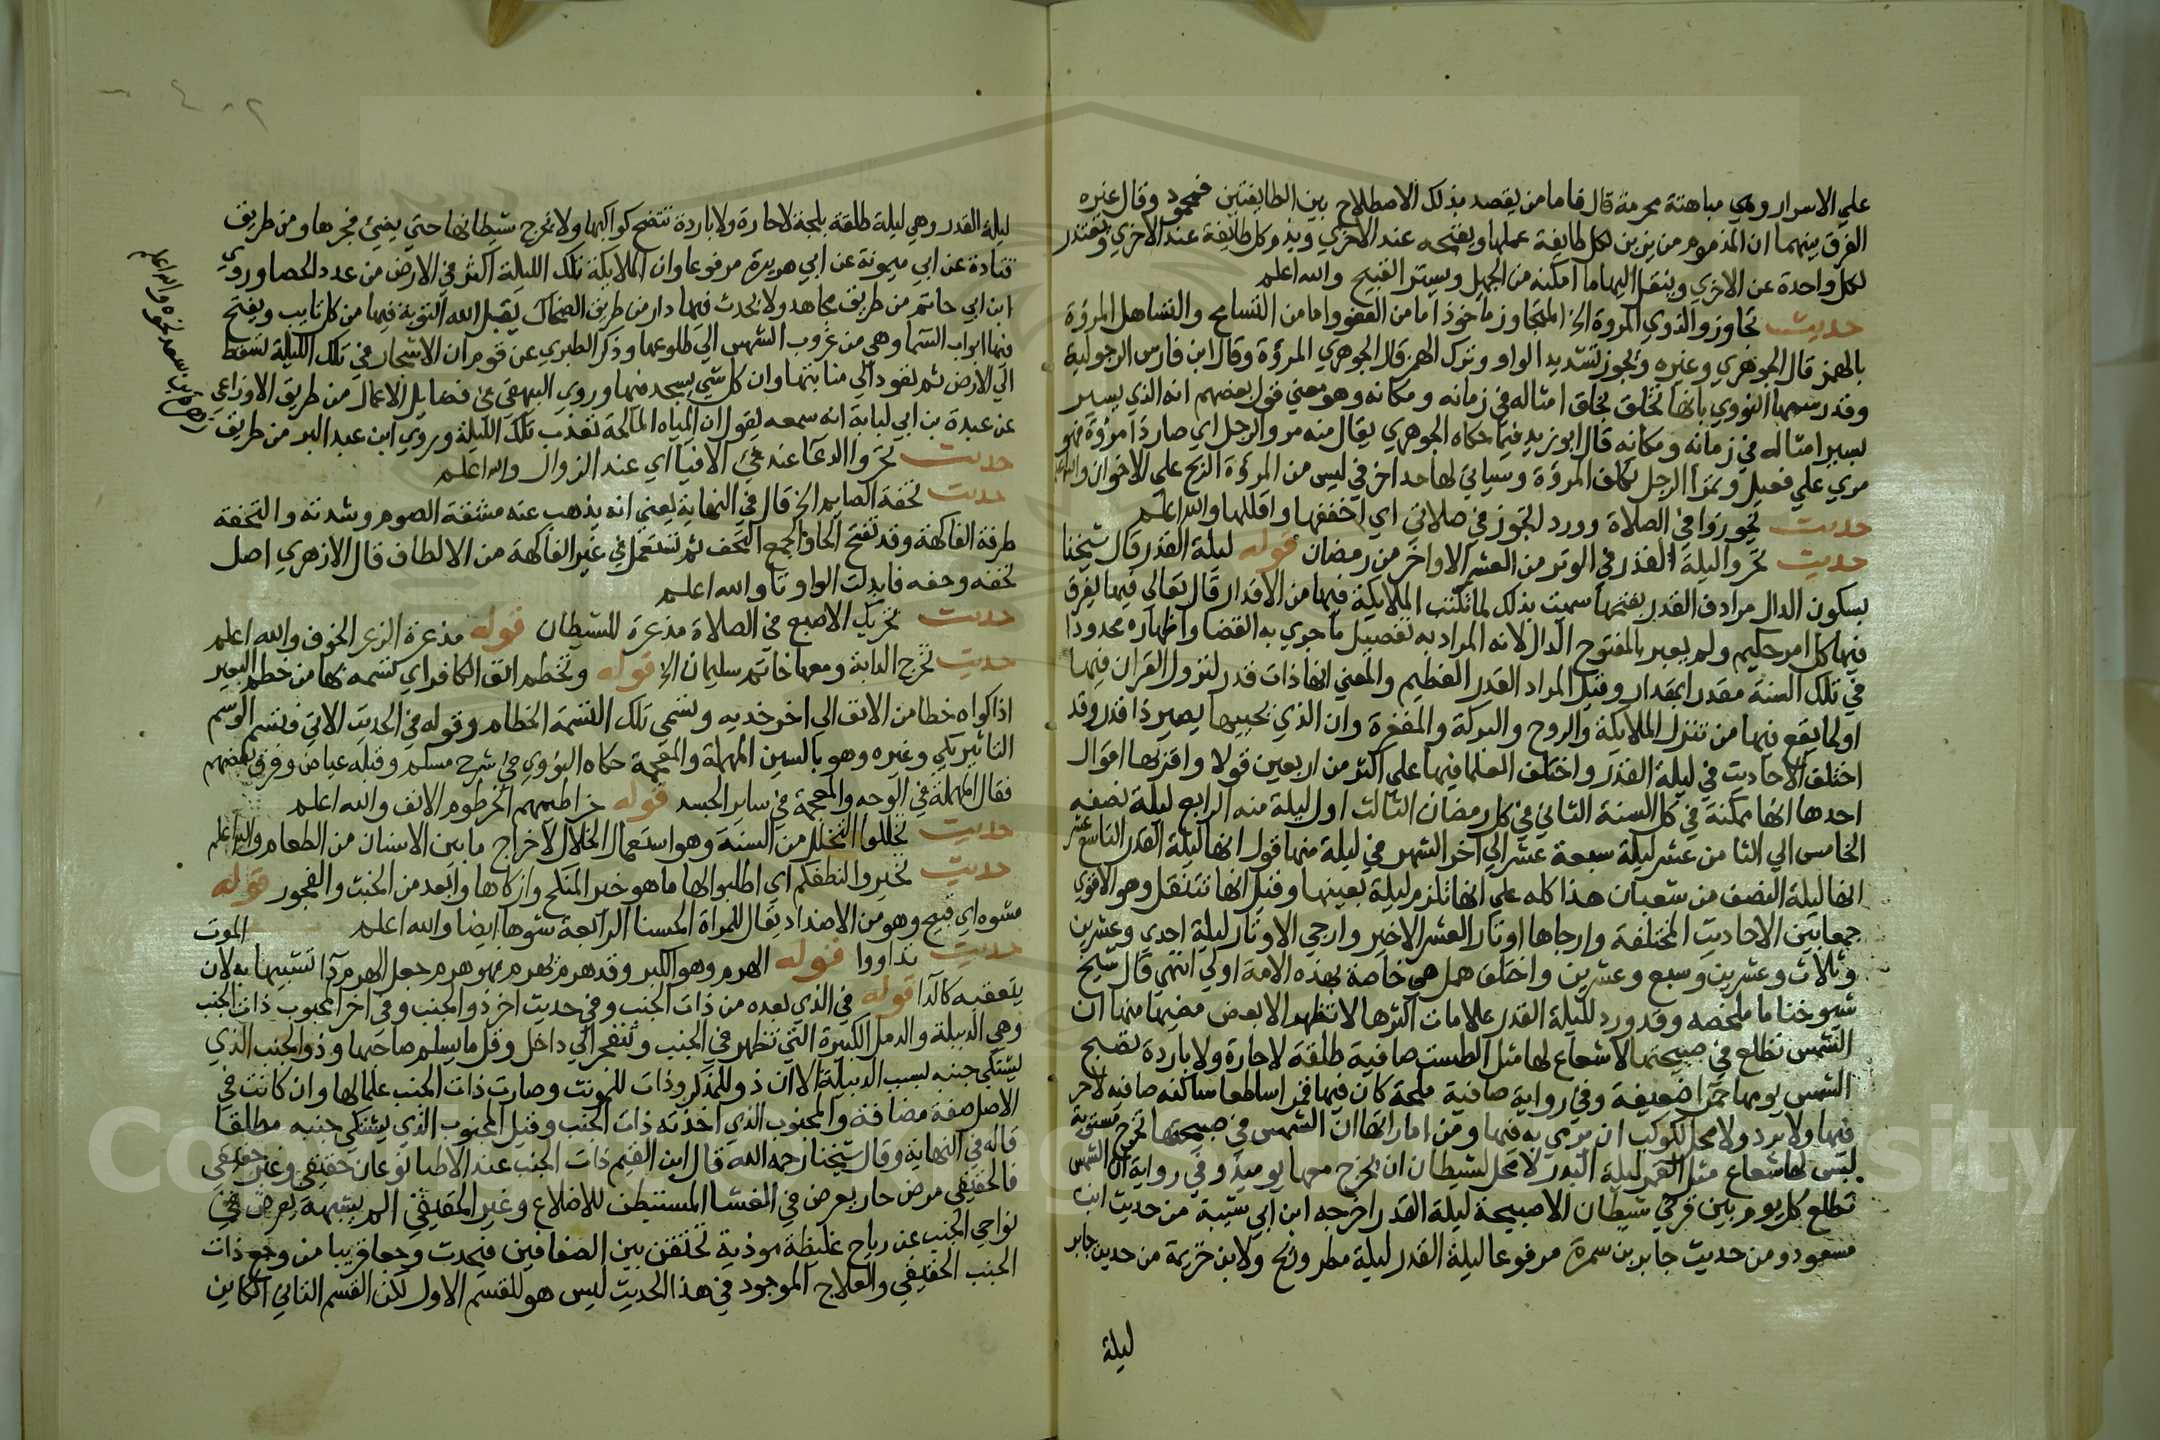 علي الاسرار وهي مباهتة محرمة قال فاما من يقصد بذلك الاصطلاح بين الطايفتين فمحمود وقال غيره
الفرق بينهما ان المذموم من يزين لكل طايفة عملها ويقبحه عند الاخري ويذم كل طايفة عند الاخري ويعتذر
لكل واحدة عن الاخري وينقل اليها ما امكنه من الجميل ويستر القبيح والله اعلم
حديث تجاوزوا لذوي المروة الخ التجاوز ماخوذ اما من العفو واما من التسامح والتساهل المروءة
بالهمز قال الجوهري وغيره ويجوز تشديد الواو وترك الهمز قال الجوهري المروءة وقال ابن فارس الرجولية
وقد رسمها النووي بانها تخلق بخلق امثاله في زمانه ومكانه وهو معني قول بعضهم انه الذي يسير
بسير امثاله في زمانه ومكانه قال ابوزيد فيما حكاه الجوهري يقال منه مرو الرجل اي صار ذا مروءة فهو
مري علي فعيل وتمرا الرجل تكلف المروءة وسياتي لها حد اخر في ليس من المروءة الربح علي الاخوان والله اعلم
حديث تجوزوا في الصلاة وورد اتجوز في صلاتي اي اخففها واقللها والله اعلم
حديث تحروا ليلة القدر في الوتر من العشر الاواخر من رمضان قوله ليلة القدر قال شيخنا
بسكون الدال مرادف القدر بفتحها سميت بذلك لما تكتب الملايكة فيها من الاقدار قال تعالي فيها يفرق
فيها كل امر حكيم ولم يعبر بالمفتوح الدال لانه المراد به تفصيل ما جري به القضا واظهاره محدودا
في تلك السنة مقدرا بمقدار وقيل المراد القدر العظيم والمعني انها ذات قدر لنزول القران فيها
او لما يقع فيها من تنزل الملايكة والروح والبركة والمغفرة وان الذي يحييها يصير ذا قدر وقد
اختلف الاحاديث في ليلة القدر واختلف العلما فيها علي اكثر من اربعين قولا واقربها اقوال
احدها انها ممكنة في كل السنة الثاني في كل رمضان الثالث اول ليلة منه الرابع ليلة نصفه
الخامس الي الثامن عشر ليلة سبعة عشر الي آخر الشهر في ليلة منها قول انها ليلة القدر التاسع عشر
انها ليلة النصف من شعبان هذا كله علي انها تلزم ليلة بعينها وقيل انها تنتقل وهو الاقوي
جمعا بين الاحاديث المختلفة وارجاها اوتار العشر الاخير وارجي الاوتار ليلة احدي وعشرين
وثلاث وعشرين وسبع وعشرين واختلف هل هي خاصة بهذه الامة اولي انتهي قال شيخ
شيوخنا ما ملخصه وقد ورد لليلة القدر علامات اكثرها لا تظهر الا بعد مضيها منها ان
الشمس تطلع في صبيحتها لا شعاع لها مثل الطست صافية طلقة لا حارة ولا باردة تصبح
الشمس يومها حمرا ضعيفة وفي رواية صافية بلجة كان فيها قمرا ساطعا ساكنه صافيه لا حر
فيها ولا برد ولا يحل لكوكب ان يرمي به فيها ومن اماراتها ان الشمس في صبيحتها تخرج مستوية
ليس لها شعاع مثل القمر ليلة البدر لا يحل لشيطان ان يخرج معها يوميذ وفي رواية ان الشمس
تطلع كل يوم بين قرني شيطان الا صبيحة ليلة القدر اخرجه ابن ابي شيبة من حديث ابن
مسعود ومن حديث جابر بن سمرة مرفوعا ليلة القدر ليلة مطر وريح ولابن خزيمة من حديث جابر
ليلة
ليلة القدر وهي ليلة طلقة بلجة لا حارة ولا باردة تتضح كواكبها ولا يخرج شيطانها حتي يضئ فجرها ومن طريق
قتادة عن ابي ميمونة عن ابي هريرة مرفوعا وان الملايكة تلك الليلة اكثر في الارض من عدد الحصا وروي
ابن ابي حاتم من طريق مجاهد ولا يحدث فيها دا ومن طريق الضحاك يقبل الله التوبة فيها من كل تايب ويفتح
فيها ابواب السما وهي من غروب الشمس الي طلوعها وذكر الطبري عن قوم ان الاشجار في تلك الليلة تسقط
الي الارض ثم تعود الي منابتها وان كل شي يسجد فيها وروي البيهقي في فضايل الاعمال من طريق الاوزاعي
عن عبدة بن ابي لبابة انه سمعه يقول ان المياه المالحة تعذب تلك الليلة وروي ابن عبد البر من طريق
زهرة بن معبد نحوه والله اعلم
حديث تحروا الدعا عند فئ الافيا اي عند الزوال والله اعلم
حديث تحفة الصايم الخ قال في النهاية يعني انه يذهب عنه مشقة الصوم وشدته والتحفة
طرفة الفاكهة وقد تفتح الحا والجمع التحف ثم تستعمل في غير الفاكهة من الالطاف قال الازهري اصل
تحفه وحفه فابدلت الواو تا والله اعلم
حديث تحريك الاصبع في الصلاة مذعرة للشيطان قوله مذعرة الذعر الخوف والله اعلم
حديث تخرج الدابة ومعها خاتم سليمان الخ قوله وتخطم انف الكافر اي تسمه بها من خطم البعير
اذا كواه خطا من الانف الي اخر خديه وتسمي تلك السمة الخطام وقوله في الحديث الاتي فتسم الوسم
التاثير بكي وغيره وهو بالسين المهملة والمعجمة حكاه النووي في شرح مسلم وقبله عياض وفرق بعضهم
فقال المهملة في الوجه والمعجمة في ساير الجسد قوله خراطيمهم الخرطوم الانف والله اعلم
حديث تخللوا التخلل من السنة وهو استعمال الخلال لاخراج ما بين الاسنان من الطعام والله اعلم
حديث تخيروا لنطفكم اي اطلبوا لها ما هو خير المناكح وازكاها وابعد من الخبث والفجور قوله
مشوه اي قبيح وهو من الاضداد يقال للمراة الحسنا الرائعة شوها ايضا والله اعلم
حديث تداووا قوله الهرم وهو الكبر وقد هرم يهرم فهو هرم جعل الهرم دآ تشبيها به لان الموت
يتعقبه كالدآ قوله في الذي بعده من ذات الجنب وفي حديث اخر ذو الجنب وفي اخر المجنوب ذات الجنب
وهي الدبيلة والدمل الكبيرة التي تظهر في الجنب وتنفجر الي داخل وقل ما يسلم صاحبها وذو الجنب الذي
يشتكي جنبه بسبب الدبيلة الا ان ذو للمذكر وذات للمونث وصارت ذات الجنب علما لها وان كانت في
الاصل صفة مضافة والمجنوب الذي اخذته ذات الجنب وقيل المجنوب الذي يشتكي جنبه مطلقا
قاله في النهاية وقال شيخنا رحمه الله قال ابن القيم ذات الجنب عند الاطبا نوعان حقيقي وغير حقيقي
فالحقيقي مرض حار يعرض في الغشا المستبطن للاضلاع وغير الحقيقي الم يشبهه يعرض في
نواحي الجنب عن رياح غليظة موذية تحتقن بين الصفاقين فيحدث وجعا قريبا من وجع ذات
الجنب الحقيقي والعلاج الموجود في هذا الحديث ليس هو للقسم الاول لكن القسم الثاني الكاين